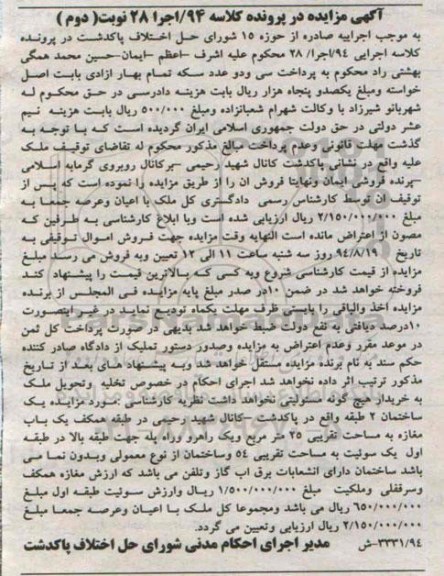 آگهی مزایده در پرونده کلاسه ۹۴/اجرا ۲۸ نوبت( دوم )
به موجب اجراییه صادره از حوزه ۱۵ شورای حل اختلاف پاکدشت در پرونده
کلاسه اجرایی ۹۴/اجرا/ ۲۸ محکوم علیه اشرف –اعظم –ایمان–حسین محمد همگی
بهشتی راد محکوم به پرداخت سی ودو عدد سکه تمام بهار ازادی بابت اصل
خواسته ومبلغ یکصدو پنجاه هزار ریال بابت هزینه دادرسی در حق محکوم له
شهربانو شیرزاد با وکالت شهرام شعبانزاده ومبلغ ۵۰۰/۰۰۰ ریال بابت هزینه نیم
عشر دولتی در حق دولت جمهوری اسلامی ایران گردیده است که با توجه به
گذشت مهلت قانونی وعدم پرداخت مبالغ مذکور محکوم له تقاضای توقیف ملک
علیه واقع در نشانی پاکدشت کانال شهید رحیمی –برکانال روبروی گرمابه اسلامی
–پرنده فروشی ایمان ونهایتا فروش ان را از طریق مزایده را نموده است که پس از
توقیف ان توسط کارشناس رسمی دادگستری کل ملک با اعیان وعرصه جمعا به
مبلغ ۲/۱۵۰/۰۰۰/۰۰۰ ریال ارزیابی شده است وبا ابلاغ کارشناسی به طرفین که
مصون از اعتراض مانده است النهایه وقت مزایده جهت فروش اموال توقیفی به
تاریخ ۹۴/۸/۱۹ روز سه شنبه ساعت ۱۱ الی ۱۲ تعیین وبه فروش می رسد مبلغ
مزایده از قیمت کارشناسی شروع وبه کسی که بالاترین قیمت را پیشنهاد کند
فروخته خواهد شد در ضمن ۱۰در صدر مبلغ پایه مزایده فی المجلس از برنده
مزایده اخذ والباقی را بایستی ظرف مهلت یکماه تودیع نماید در غیر اینصورت
۱۰درصد دیافتی به نفع دولت ضبط خواهد شد بدیهی در صورت پرداخت کل ثمن
در موعد مقرر وعدم اعتراض به مزایده وصدور دستور تملیک از دادگاه صادر کننده
حکم سند به نام برنده مزایده منتقل خواهد شد وبه پیشنهاد های بعد از تاریخ
مذکور ترتیب اثر داده نخواهد شد اجرای احکام در خصوص تخلیه وتحویل ملک
به خریدار هیچ گونه مسئولیتی نخواهد داشت نظریه کارشناسی :مورد مزایده یک
ساختمان ۲ طبقه واقع در پاکدشت –کانال شهید رحیمی در طبقه همکف یک باب
مغازه به مساحت تقریبی ۳۵ متر مربع ویک راهرو وراه پله جهت طبقه بالا در طبقه
اول یک سوئیت به مساحت تقریبی ۵۴ وساختمان از نوع معمولی وبدون نما می
باشد ساختمان دارای انشعابات برق اب گاز وتلفن می باشد که ارزش مغازه همکف
وسرقفلی وملکیت مبلغ ۱/۵۰۰/۰۰۰/۰۰۰ ریال وارزش سوئیت طبقه اول مبلغ
۶۵۰/۰۰۰/۰۰۰ ریال می باشد ومجموعا کل ملک با اعیان وعرصه جمعا مبلغ
۲/۱۵۰/۰۰۰/۰۰۰ ریال ارزیابی وتعیین می گردد.
۳۳۳۱/۹۴–ش مدیر اجرای احکام مدنی شورای حل اختلاف پاکدشت